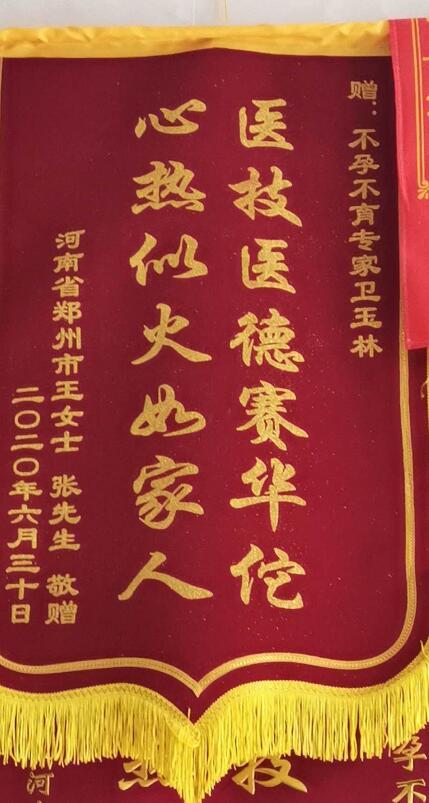 赠：不孕不育专家卫玉林
医技医德赛华佗
心热似火如家人
河南省郑州市王女士 张先生 敬赠
二〇二〇年六月三十日
孕不
技
热
河